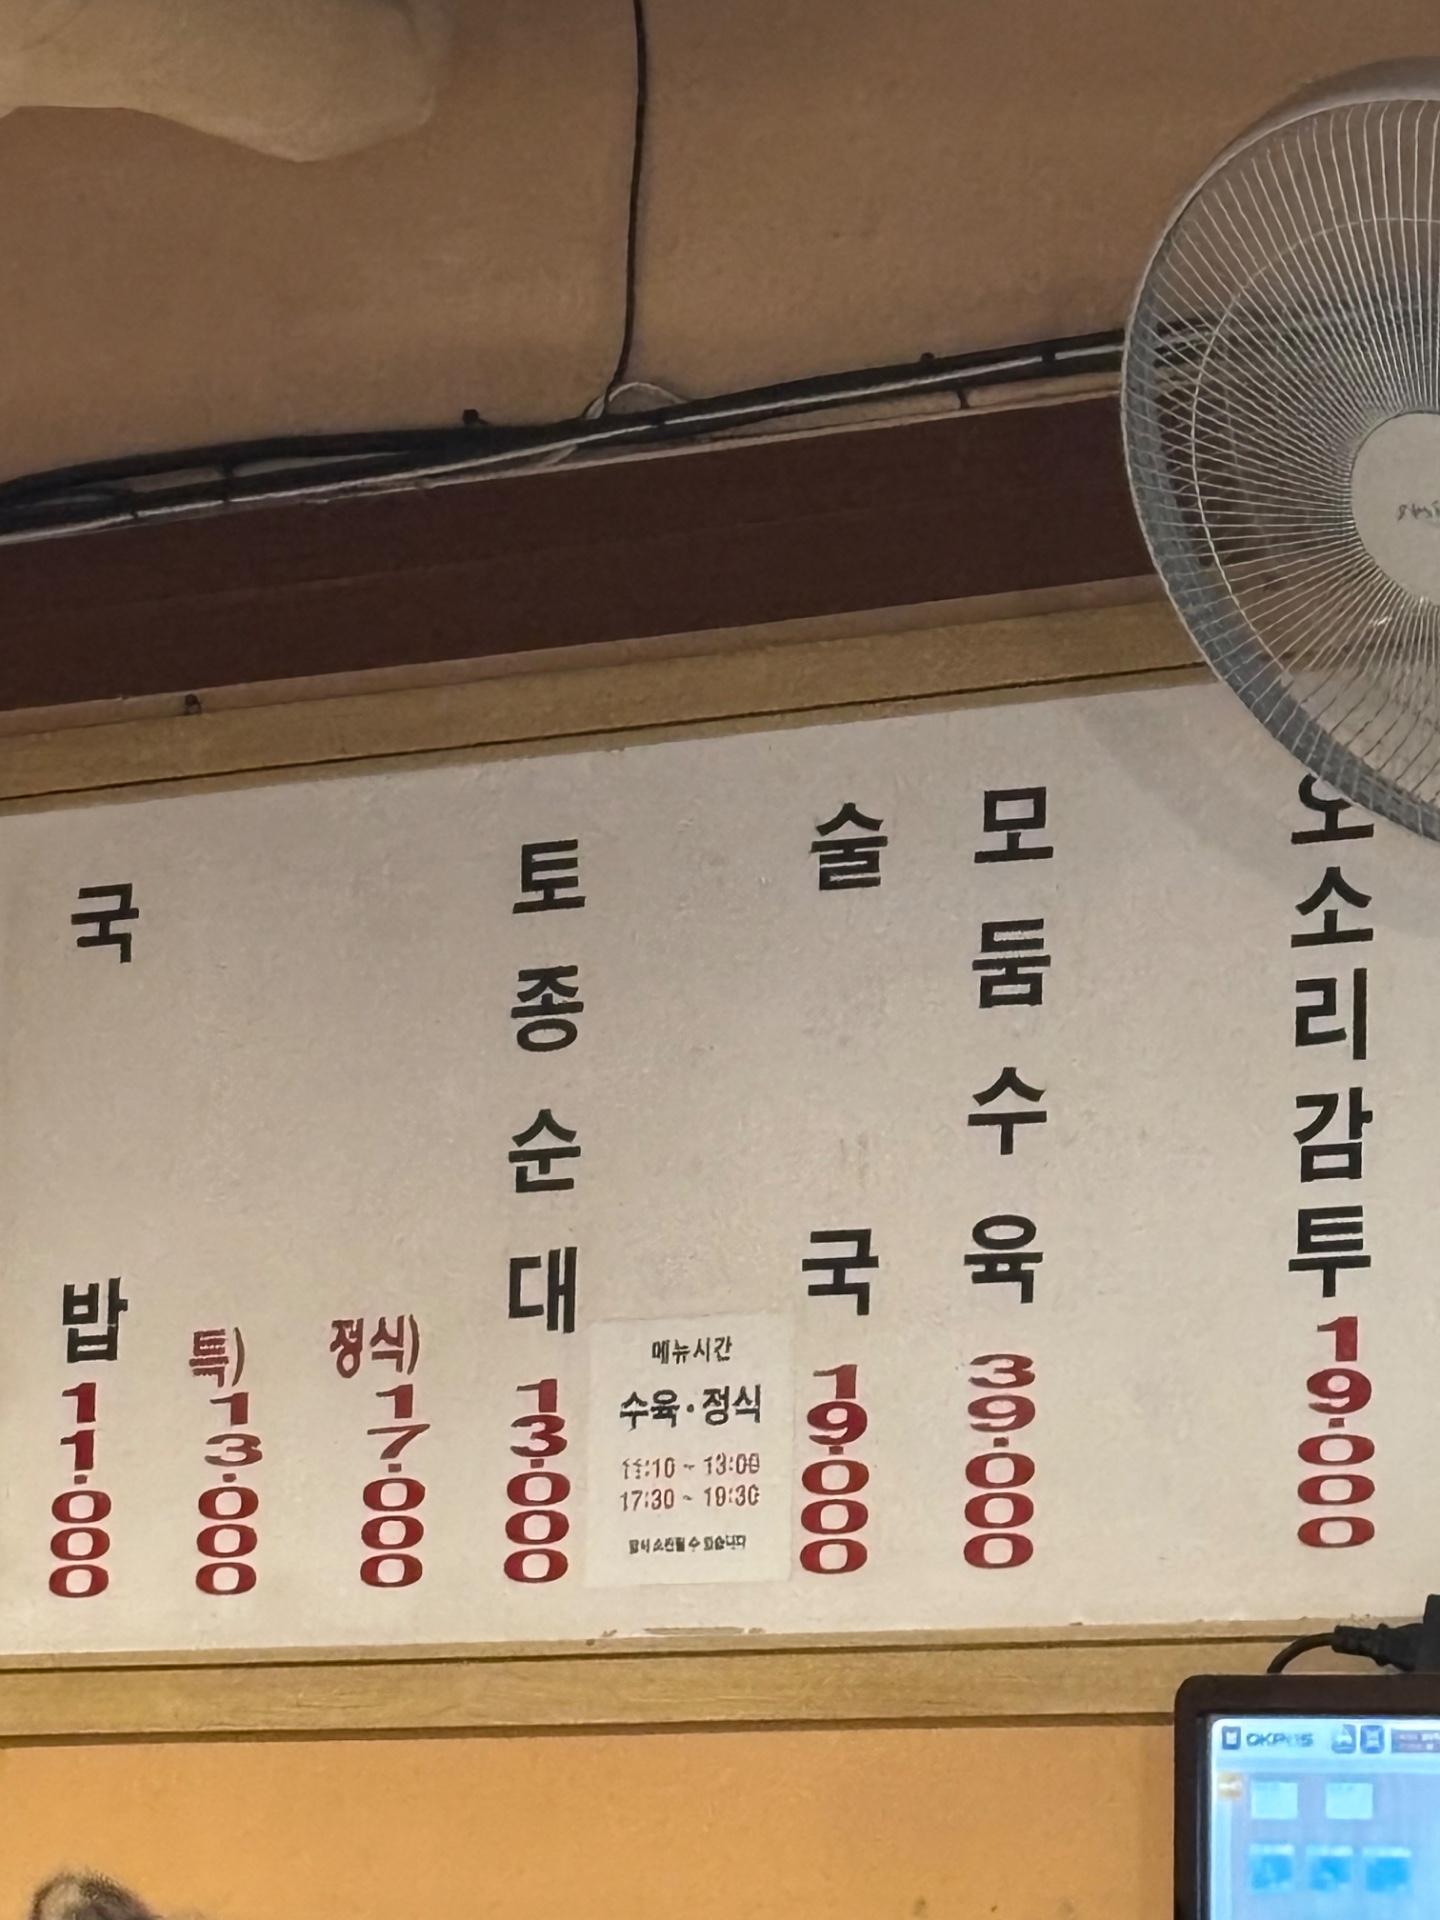 국밥 11.000
특) 13.000
정식) 17.000
토종순대 13.000
메뉴시간
수육·정식
11:10 ~ 13:00
17:30 ~ 19:30
술국 19.000
모둠수육 39.000
오소리감투 19.000
OKPOS